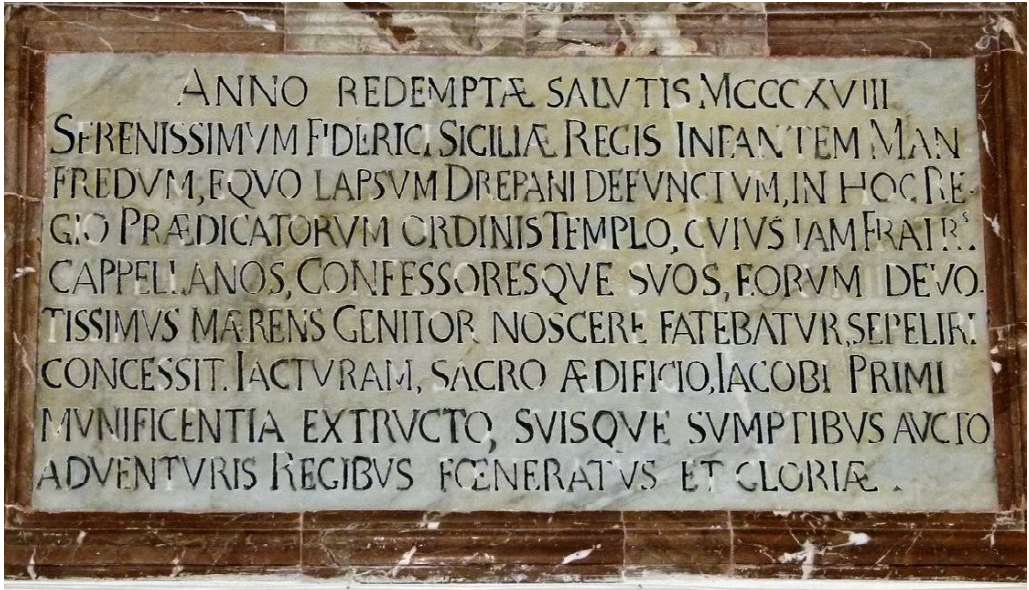 ANNO REDEMPTÆ SALVTIS MCCCXVIII
SERENISSIMVM FIDERICI SICILIÆ REGIS INFANTEM MAN
FREDVM, EQVO LAPSVM DREPANI DEFVNCTVM, IN HOC RE-
GIO PRÆDICATORVM ORDINIS TEMPLO, CVIVS IAM FRATRS.
CAPPELLANOS, CONFESSORESQVE SVOS, EORVM DEVO.
TISSIMVS MÆRENS GENITOR NOSCERE FATEBATVR, SEPELIRI
CONCESSIT. IACTVRAM, SACRO ÆDIFICIO, IACOBI PRIMI
MVNIFICENTIA EXTRVCTO, SVISQVE SVMPTIBVS AVCTO
ADVENTVRIS REGIBVS FŒNERATVS ET GLORIÆ.